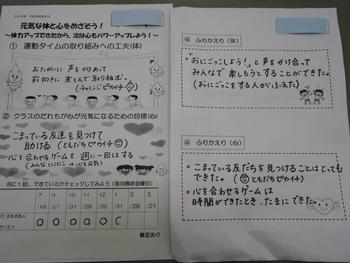 元気な体と心をめざそう!
~体力アップできたから、次は心もパワーアップしよう!~
① 運動タイムの取り組みへの工夫(体)
おたがいに声をかけあって
前向きに楽しんで取り組む
(チャレンジピカイチ)
② クラスのだれもが心が元気になるための目標(心)
・こまっている友達を見つけて
助ける(ともだちピカイチ)
・心を合わせるゲームを週に一回はする
月に1回、できているかチェックしてみよう(毎月最終金曜日)
7 8 9 10 11 12 1
裏面あり
④ ふりかえり(体)
「おにごっこしよう!」と声をかけ合って
みんなで楽しもうとすることができた。
(おにごっこをする人がふえた)
④ ふりかえり(心)
・こまっている友だちを見つけることはとても
できた。(ともだちピカイチ)
・心を合わせるゲームは
時間ができたとき、たまにできた。